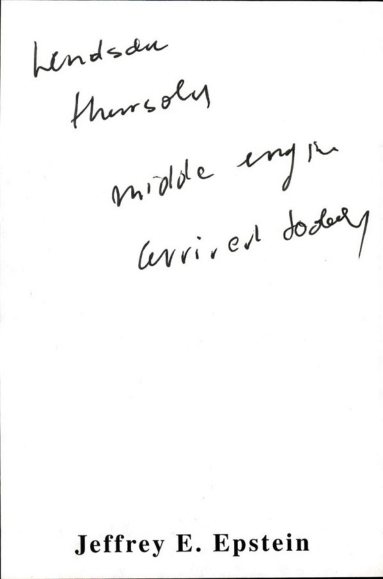 thursday
middle engin
arrived today
Jeffrey E. Epstein